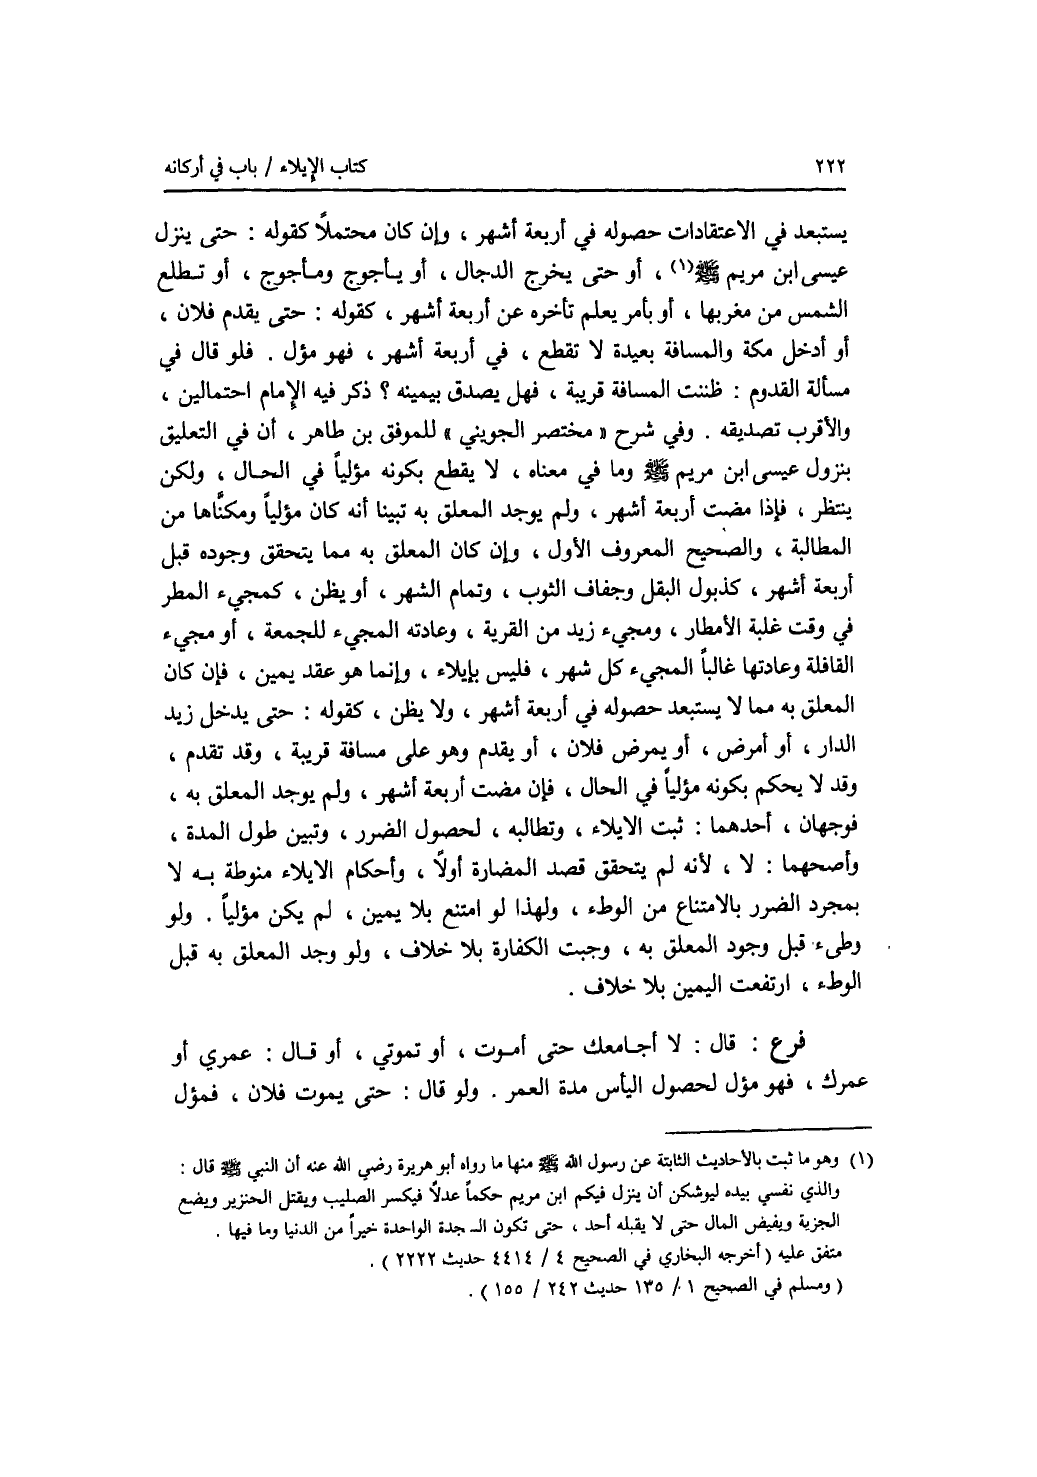 ٢٢٢ كتاب الإيلاء / باب في أركانه
يستبعد في الاعتقادات حصوله في أربعة أشهر ، وإن كان محتملاً كقوله : حتى ينزل
عيسى ابن مريم ﷺ(١) ، أو حتى يخرج الدجال ، أو يأجوج ومأجوج ، أو تطلع
الشمس من مغربها ، أو بأمر يعلم تأخره عن أربعة أشهر ، كقوله : حتى يقدم فلان ،
أو أدخل مكة والمسافة بعيدة لا تقطع ، في أربعة أشهر ، فهو مؤل . فلو قال في
مسألة القدوم : ظننت المسافة قريبة ، فهل يصدق بيمينه ؟ ذكر فيه الإمام احتمالين ،
والأقرب تصديقه . وفي شرح « مختصر الجويني » للموفق بن طاهر ، أن في التعليق
بنزول عيسى ابن مريم ﷺ وما في معناه ، لا يقطع بكونه مؤلياً في الحال ، ولكن
ينتظر ، فإذا مضت أربعة أشهر ، ولم يوجد المعلق به تبينا أنه كان مؤلياً ومكنَّاها من
المطالبة ، والصحيح المعروف الأول ، وإن كان المعلق به مما يتحقق وجوده قبل
أربعة أشهر ، كذبول البقل وجفاف الثوب ، وتمام الشهر ، أو يظن ، كمجيء المطر
في وقت غلبة الأمطار ، ومجيء زيد من القرية ، وعادته المجيء للجمعة ، أو مجيء
القافلة وعادتها غالباً المجيء كل شهر ، فليس بإيلاء ، وإنما هو عقد يمين ، فإن كان
المعلق به مما لا يستبعد حصوله في أربعة أشهر ، ولا يظن ، كقوله : حتى يدخل زيد
الدار ، أو أمرض ، أو يمرض فلان ، أو يقدم وهو على مسافة قريبة ، وقد تقدم ،
وقد لا يحكم بكونه مؤلياً في الحال ، فإن مضت أربعة أشهر ، ولم يوجد المعلق به ،
فوجهان ، أحدهما : ثبت الايلاء ، وتطالبه ، لحصول الضرر ، وتبين طول المدة ،
وأصحهما : لا ، لأنه لم يتحقق قصد المضارة أولاً ، وأحكام الايلاء منوطة بـه لا
بمجرد الضرر بالامتناع من الوطء ، ولهذا لو امتنع بلا يمين ، لم يكن مؤلياً . ولو
وطىء قبل وجود المعلق به ، وجبت الكفارة بلا خلاف ، ولو وجد المعلق به قبل
الوطء ، ارتفعت اليمين بلا خلاف .
فرع : قال : لا أجامعك حتى أموت ، أو تموتي ، أو قال : عمري أو
عمرك ، فهو مؤل لحصول اليأس مدة العمر . ولو قال : حتى يموت فلان ، فمؤل
(١) وهو ما ثبت بالأحاديث الثابتة عن رسول الله ﷺ منها ما رواه أبو هريرة رضي الله عنه أن النبي ﷺ قال :
والذي نفسي بيده ليوشكن أن ينزل فيكم ابن مريم حكماً عدلاً فيكسر الصليب ويقتل الخنزير ويضع
الجزية ويفيض المال حتى لا يقبله أحد ، حتى تكون الـ جدة الواحدة خيراً من الدنيا وما فيها .
متفق عليه ( أخرجه البخاري في الصحيح ٤ / ٤٤١٤ حديث ٢٢٢٢ ) .
( ومسلم في الصحيح ١ / ١٣٥ حديث ٢٤٢ / ١٥٥ ) .